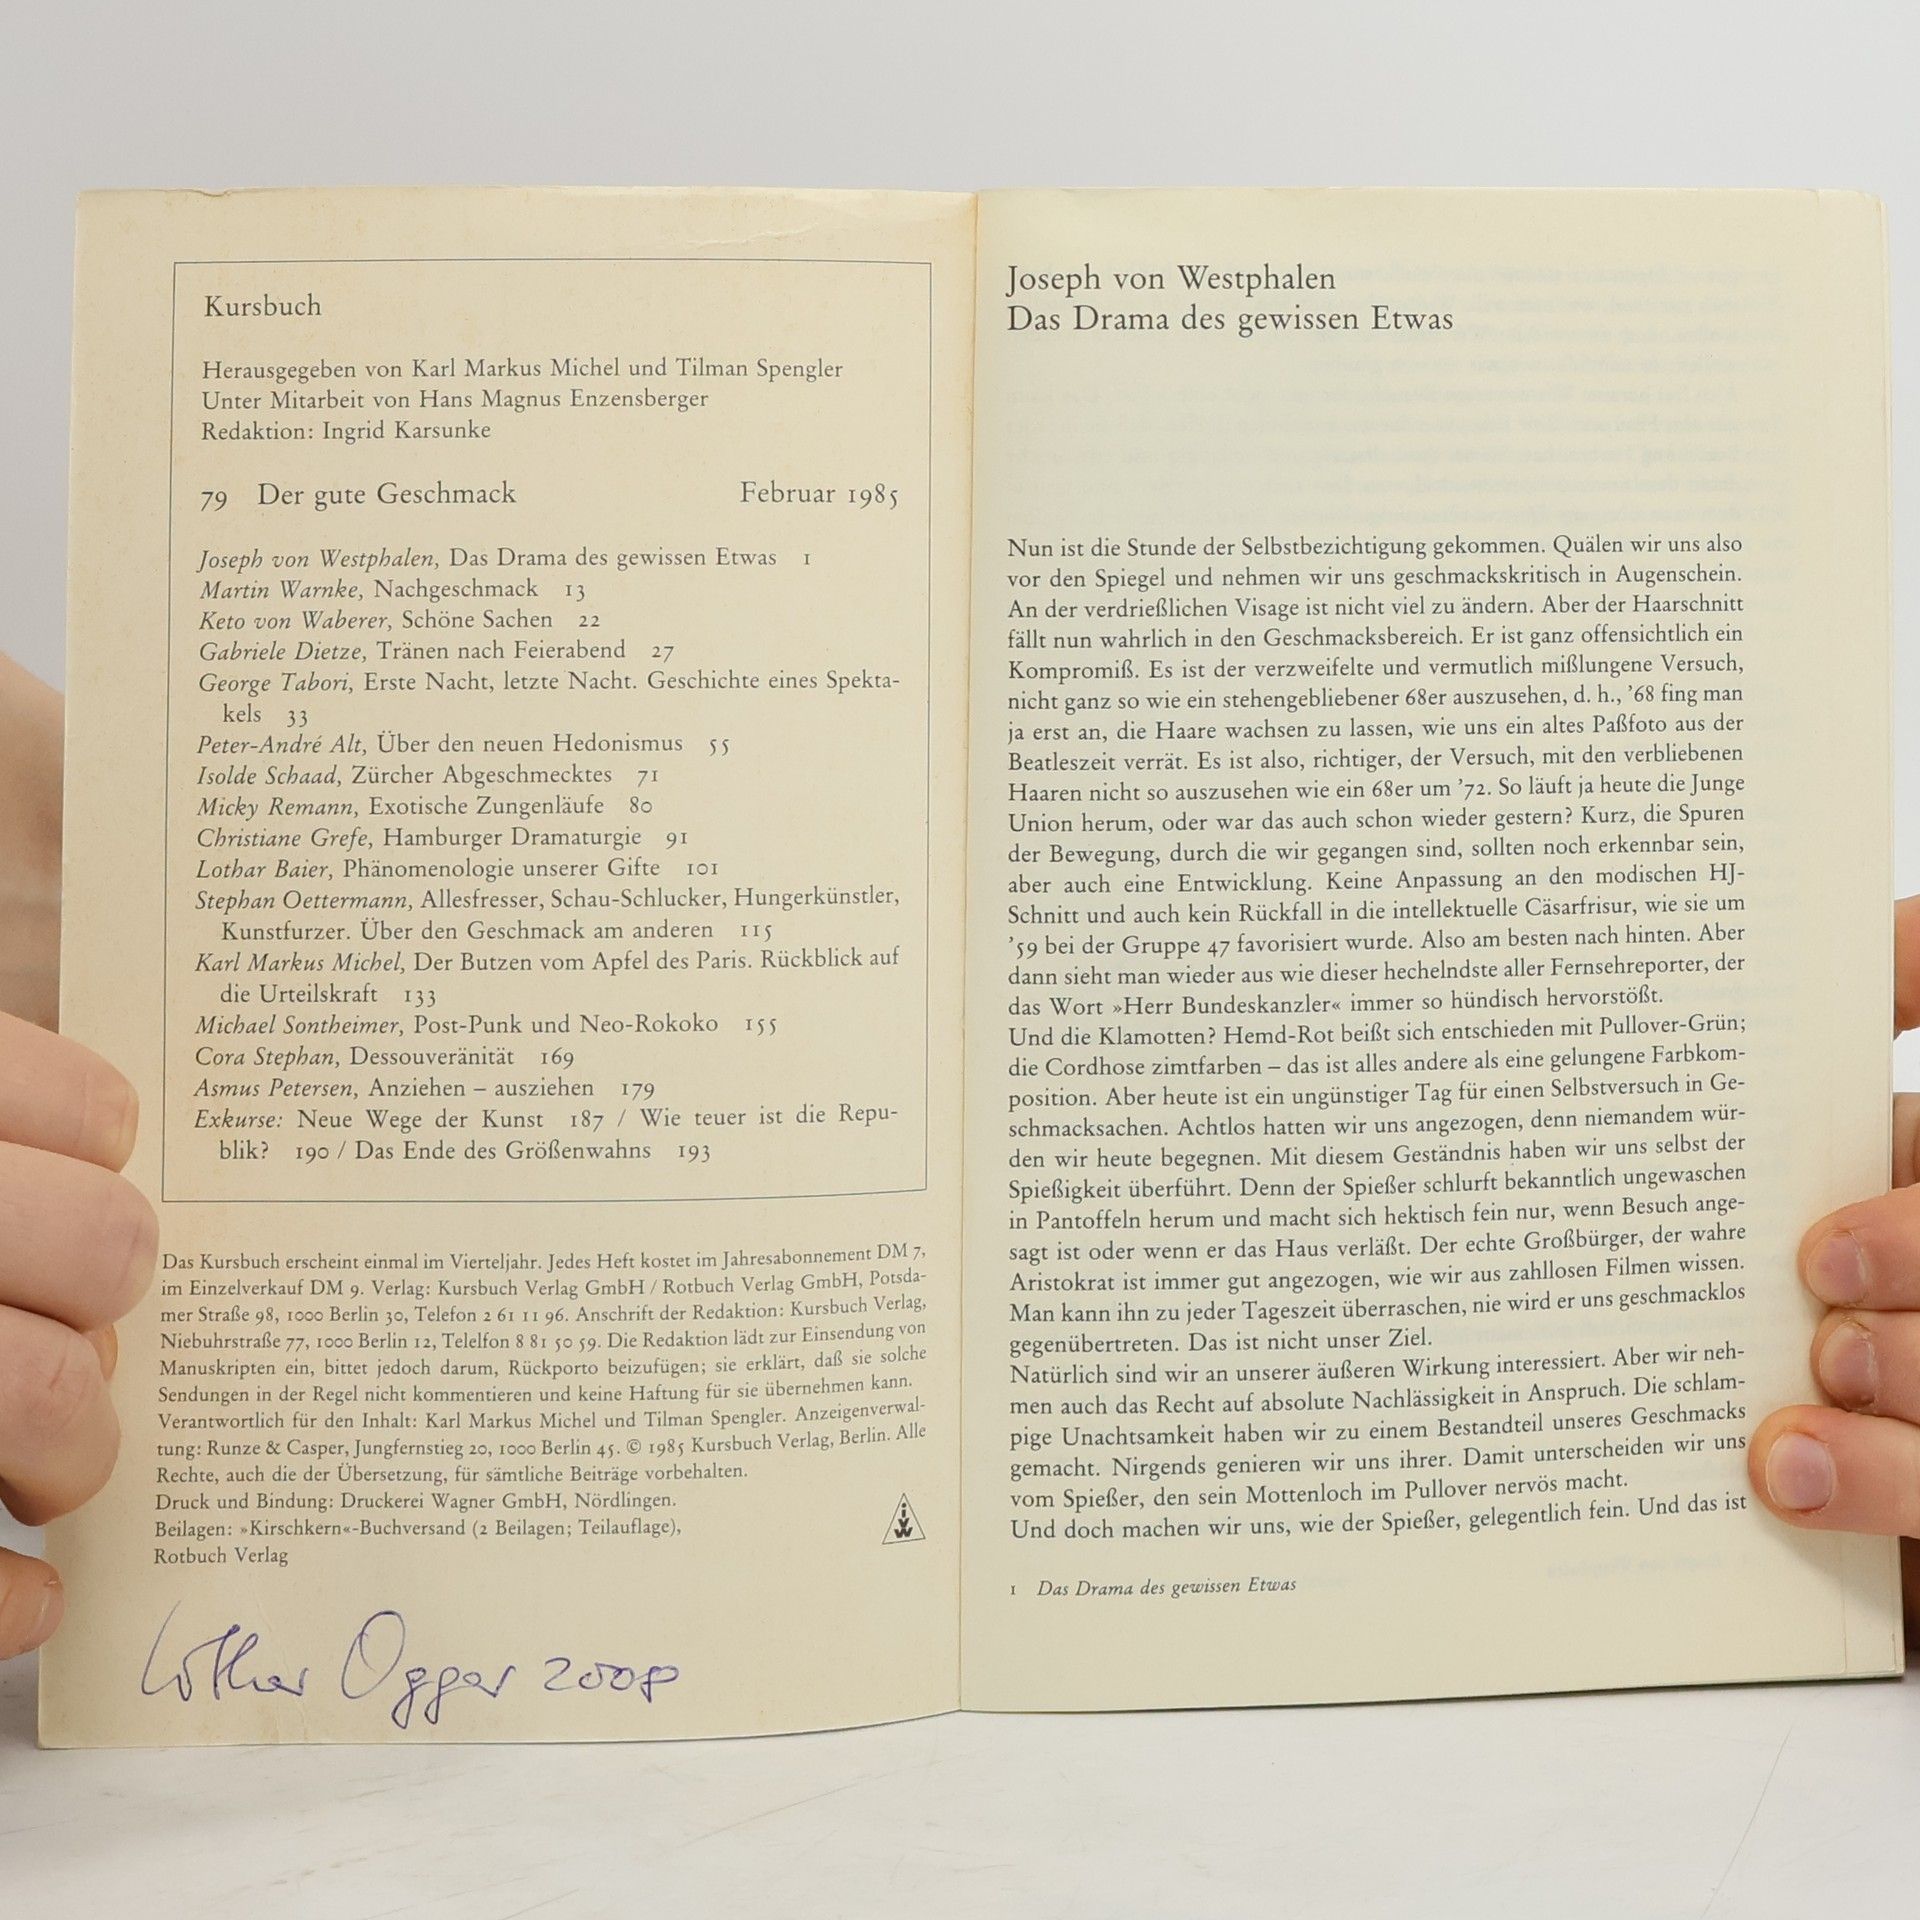 Kursbuch
Herausgegeben von Karl Markus Michel und Tilman Spengler
Unter Mitarbeit von Hans Magnus Enzensberger
Redaktion: Ingrid Karsunke
79 Der gute Geschmack Februar 1985
Joseph von Westphalen, Das Drama des gewissen Etwas 1
Martin Warnke, Nachgeschmack 13
Keto von Waberer, Schöne Sachen 22
Gabriele Dietze, Tränen nach Feierabend 27
George Tabori, Erste Nacht, letzte Nacht. Geschichte eines Spekta-
kels 33
Peter-André Alt, Über den neuen Hedonismus 55
Isolde Schaad, Zürcher Abgeschmecktes 71
Micky Remann, Exotische Zungenläufe 80
Christiane Grefe, Hamburger Dramaturgie 91
Lothar Baier, Phänomenologie unserer Gifte 101
Stephan Oettermann, Allesfresser, Schau-Schlucker, Hungerkünstler,
Kunstfurzer. Über den Geschmack am anderen 115
Karl Markus Michel, Der Butzen vom Apfel des Paris. Rückblick auf
die Urteilskraft 133
Michael Sontheimer, Post-Punk und Neo-Rokoko 155
Cora Stephan, Dessouveränität 169
Asmus Petersen, Anziehen – ausziehen 179
Exkurse: Neue Wege der Kunst 187 / Wie teuer ist die Repu-
blik? 190 / Das Ende des Größenwahns 193
Das Kursbuch erscheint einmal im Vierteljahr. Jedes Heft kostet im Jahresabonnement DM 7,
im Einzelverkauf DM 9. Verlag: Kursbuch Verlag GmbH / Rotbuch Verlag GmbH, Potsda-
mer Straße 98, 1000 Berlin 30, Telefon 2 61 11 96. Anschrift der Redaktion: Kursbuch Verlag,
Niebuhrstraße 77, 1000 Berlin 12, Telelfon 8 81 50 59. Die Redaktion lädt zur Einsendung von
Manuskripten ein, bittet jedoch darum, Rückporto beizufügen; sie erklärt, daß sie solche
Sendungen in der Regel nicht kommentieren und keine Haftung für sie übernehmen kann.
Verantwortlich für den Inhalt: Karl Markus Michel und Tilman Spengler. Anzeigenverwal-
tung: Runze & Casper, Jungfernstieg 20, 1000 Berlin 45. © 1985 Kursbuch Verlag, Berlin. Alle
Rechte, auch die der Übersetzung, für sämtliche Beiträge vorbehalten.
Druck und Bindung: Druckerei Wagner GmbH, Nördlingen.
Beilagen: »Kirschkern«-Buchversand (2 Beilagen; Teilauflage),
Rotbuch Verlag
Lothar Ogger 2008
Joseph von Westphalen
Das Drama des gewissen Etwas
Nun ist die Stunde der Selbstbezichtigung gekommen. Quälen wir uns also
vor den Spiegel und nehmen wir uns geschmackskritisch in Augenschein.
An der verdrießlichen Visage ist nicht viel zu ändern. Aber der Haarschnitt
fällt nun wahrlich in den Geschmacksbereich. Er ist ganz offensichtlich ein
Kompromiß. Es ist der verzweifelte und vermutlich mißlungene Versuch,
nicht ganz so wie ein stehengebliebener 68er auszusehen, d. h., ’68 fing man
ja erst an, die Haare wachsen zu lassen, wie uns ein altes Paßfoto aus der
Beatleszeit verrät. Es ist also, richtiger, der Versuch, mit den verbliebenen
Haaren nicht so auszusehen wie ein 68er um ’72. So läuft ja heute die Junge
Union herum, oder war das auch schon wieder gestern? Kurz, die Spuren
der Bewegung, durch die wir gegangen sind, sollten noch erkennbar sein,
aber auch eine Entwicklung. Keine Anpassung an den modischen HJ-
Schnitt und auch kein Rückfall in die intellektuelle Cäsarfrisur, wie sie um
’59 bei der Gruppe 47 favorisiert wurde. Also am besten nach hinten. Aber
dann sieht man wieder aus wie dieser hechelndste aller Fernsehreporter, der
das Wort »Herr Bundeskanzler« immer so hündisch hervorstößt.
Und die Klamotten? Hemd-Rot beißt sich entschieden mit Pullover-Grün;
die Cordhose zimtfarben – das ist alles andere als eine gelungene Farbkom-
position. Aber heute ist ein ungünstiger Tag für einen Selbstversuch in Ge-
schmacksachen. Achtlos hatten wir uns angezogen, denn niemandem wür-
den wir heute begegnen. Mit diesem Geständnis haben wir uns selbst der
Spießigkeit überführt. Denn der Spießer schlurft bekanntlich ungewaschen
in Pantoffeln herum und macht sich hektisch fein nur, wenn Besuch ange-
sagt ist oder wenn er das Haus verläßt. Der echte Großbürger, der wahre
Aristokrat ist immer gut angezogen, wie wir aus zahllosen Filmen wissen.
Man kann ihn zu jeder Tageszeit überraschen, nie wird er uns geschmacklos
gegenübertreten. Das ist nicht unser Ziel.
Natürlich sind wir an unserer äußeren Wirkung interessiert. Aber wir neh-
men auch das Recht auf absolute Nachlässigkeit in Anspruch. Die schlam-
pige Unachtsamkeit haben wir zu einem Bestandteil unseres Geschmacks
gemacht. Nirgends genieren wir uns ihrer. Damit unterscheiden wir uns
vom Spießer, den sein Mottenloch im Pullover nervös macht.
Und doch machen wir uns, wie der Spießer, gelegentlich fein. Und das ist
1 Das Drama des gewissen Etwas